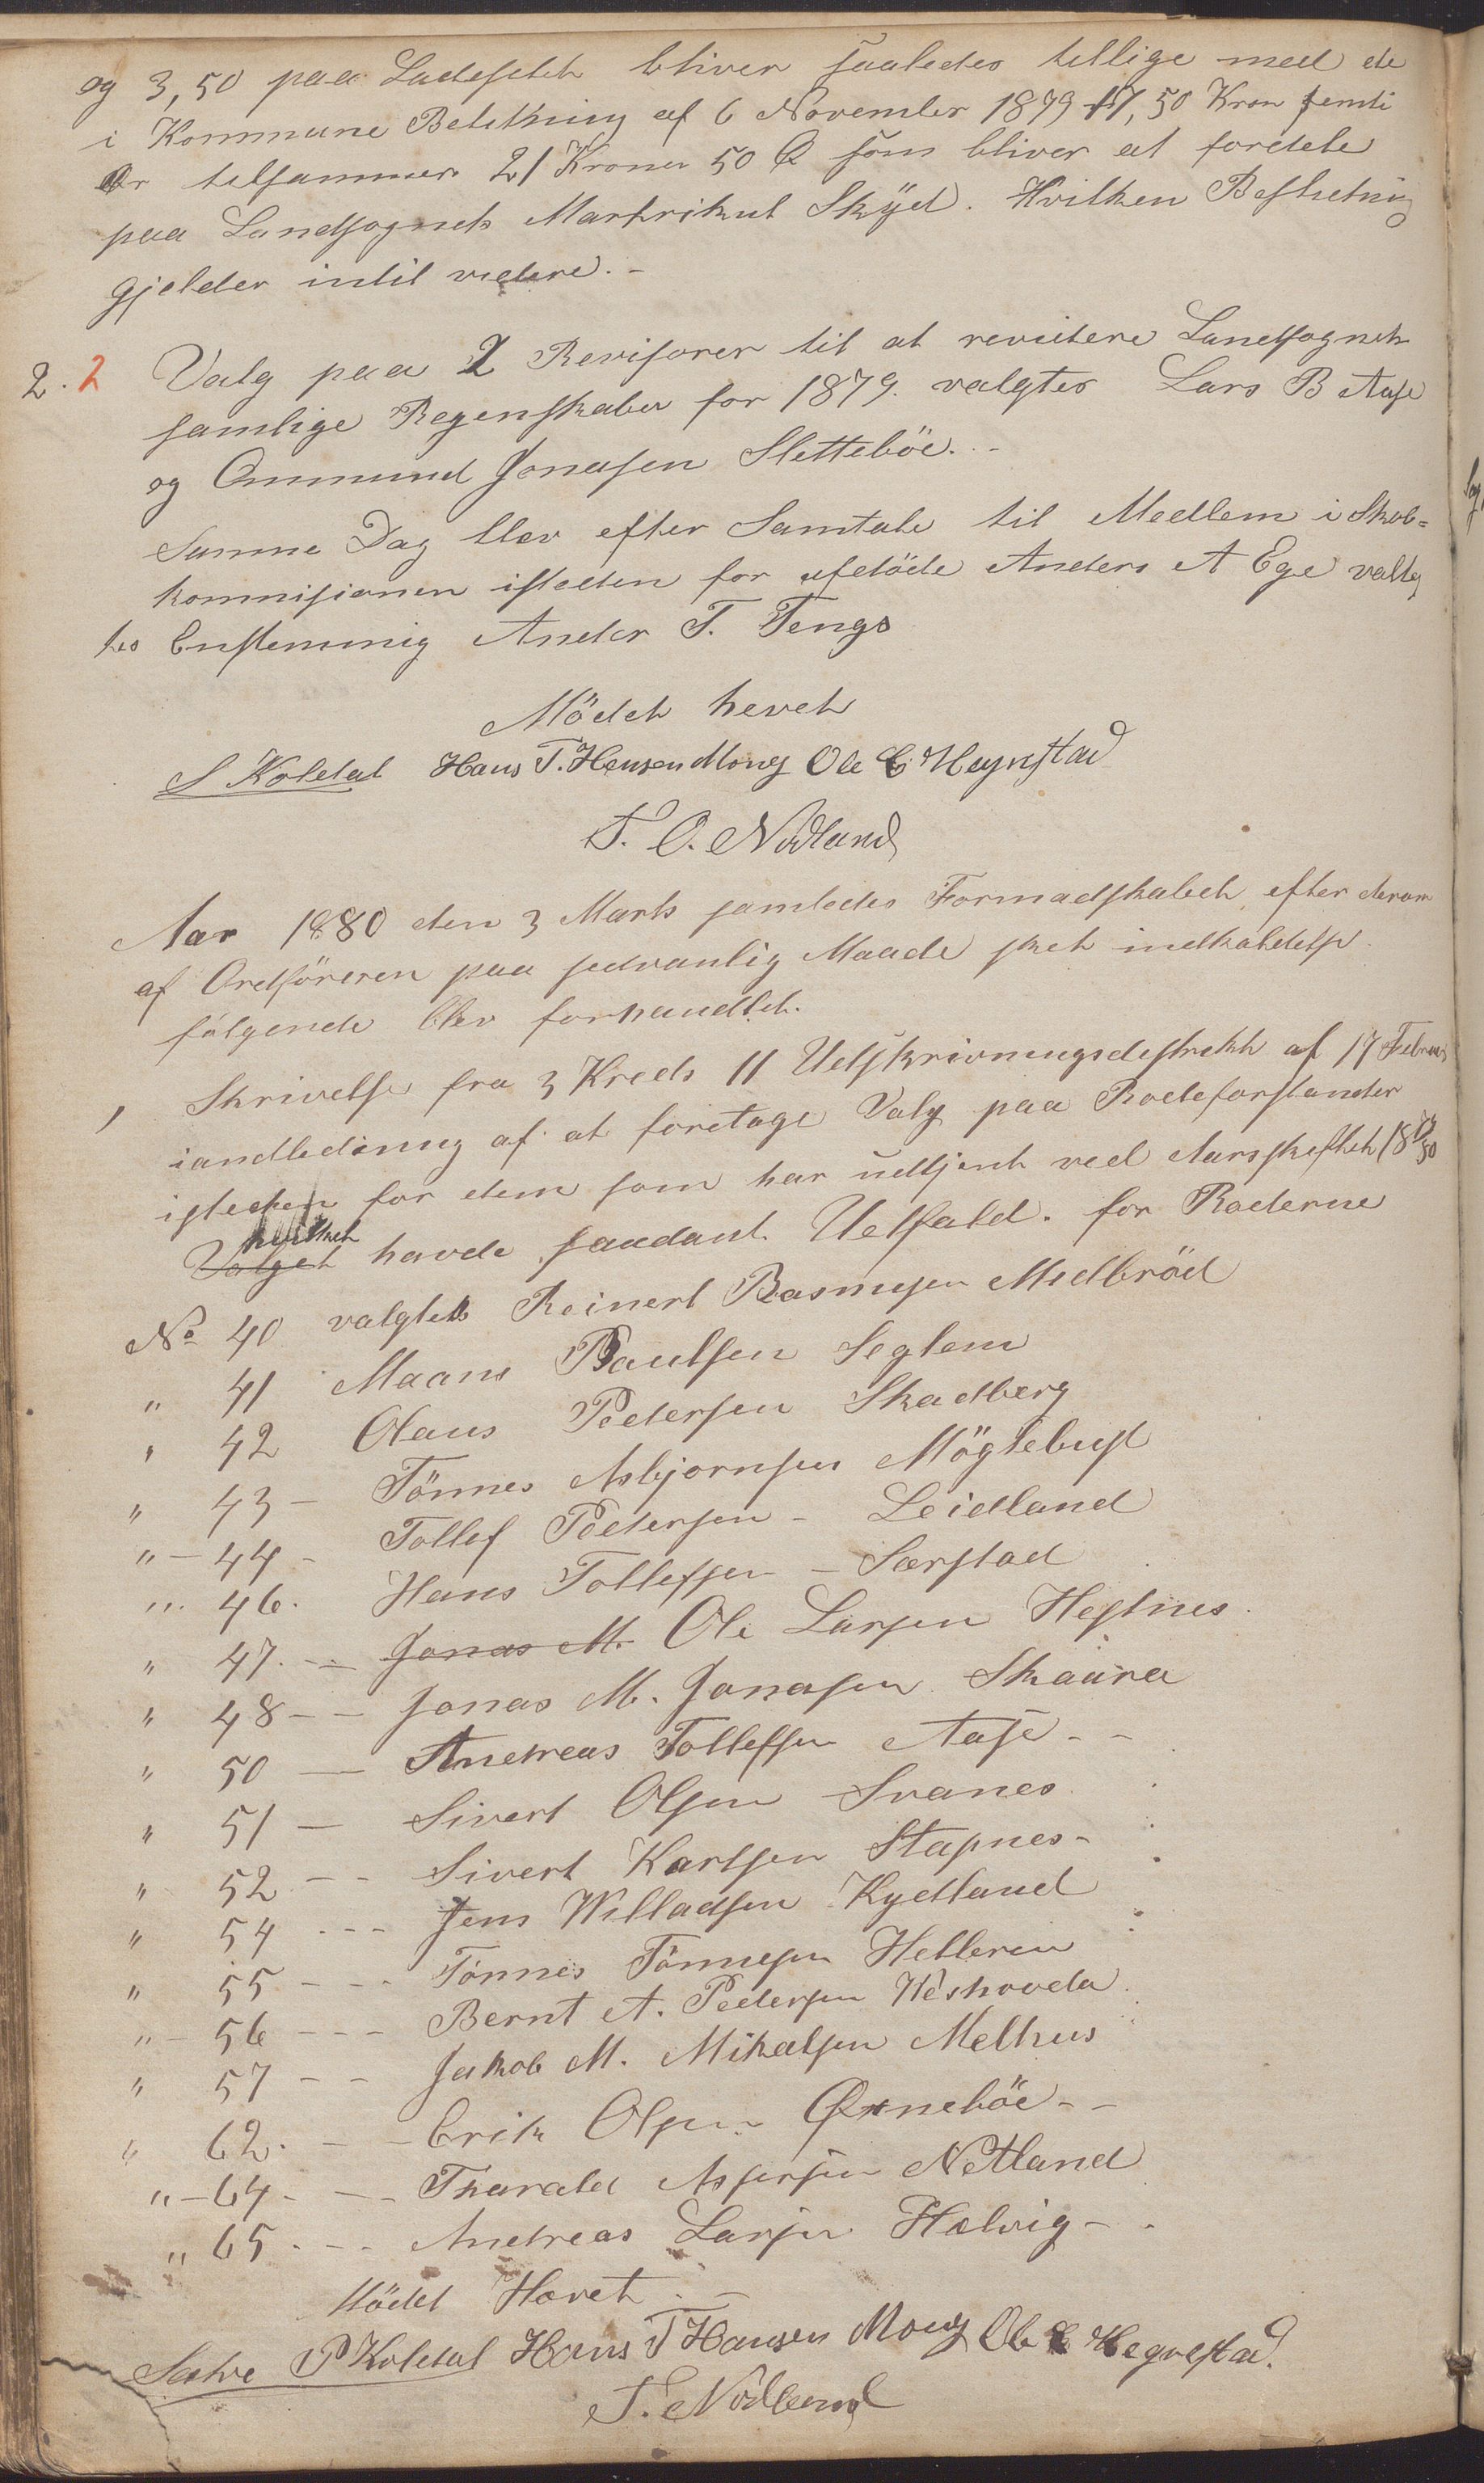 og 3,50 paa Ladestedet bliver saaledes tillige med de
i Kommune Beslutning af 6 November 1879 17,50 Kron femti
Ør tilsammen 21 Kroner 50 Ø som bliver at fordele
paa Landsognets Martrikul Skyld. Hvilken Beslutning
gjelder intil videre.-
2. 2 Valg paa 2 Revisorer til at revidere Landsognets
samlige Regenskaber for 1879. valgtes Lars B Aase
og Ommund Jonasen Sletteböe.-
Samme Dag blev efter Samtale til Medlem i Skole=
kommisionen isteden for afdöde Anders A Ege valtg
tes Enstemmig Ander T. Tengs
Mödet hevet
S Koldal Hans T. Hansen Mong Ole E Hegrestad
T. O. Nodland
Aar 1880 den 3 Marts samledes Formadskabet efter derom
af Ordföreren paa sedvanlig Maade sket indkaldelse
fölgende blev forhandlet.
1 Skrivelse fra 3 Kreds 11 Udskrivningsdestrikt af 17 Februar
iandledning af at foretage Valg paa Rodeforstander
isteden for dem som har udtjent ved Aarsskiftet 1879/80
hvilket
Valget havde saadant Udfald. for Roderne
No 40 valgtes Reinert Rasmusen Midbröd
" 41 Maans Paulsen Seglem
" 42 Olaus Pedersen Skadberg
" 43 - Tönnes Asbjornsen Möglebust
" - 44 - Tollef Pedersen - Leidland
" 46. Hans Tollefsen - Særstad
" 47. - Jonas M. Ole Larsen Hestnes.
" 48 - - Jonas M. Jonasen Skaara
" 50 - Andreas Tollefsen Aase - -
" 51 - Sivert Olsen Svanes
" 52 - - Sivert Karlsen Stapnes -
" 54 - - - Jens Willadsen Kydland
" 55 - - - Tönnes Tönnesen Helleren
" - 56 - - - Bernt A. Pedersen Hèskovde
" 57 - - Jakob M. Mikalsen Melhus
" 62. - - Erik Olsen Ørneböe - -
" - 64 - - - Tharald Asersen Netland
" 65 - - - Andreas Larsen Hælvig - -
Mödet Hævet. -
Salve P Koldal Hans T Hansen Mong Ole E Hegrestad.
T. Nodland